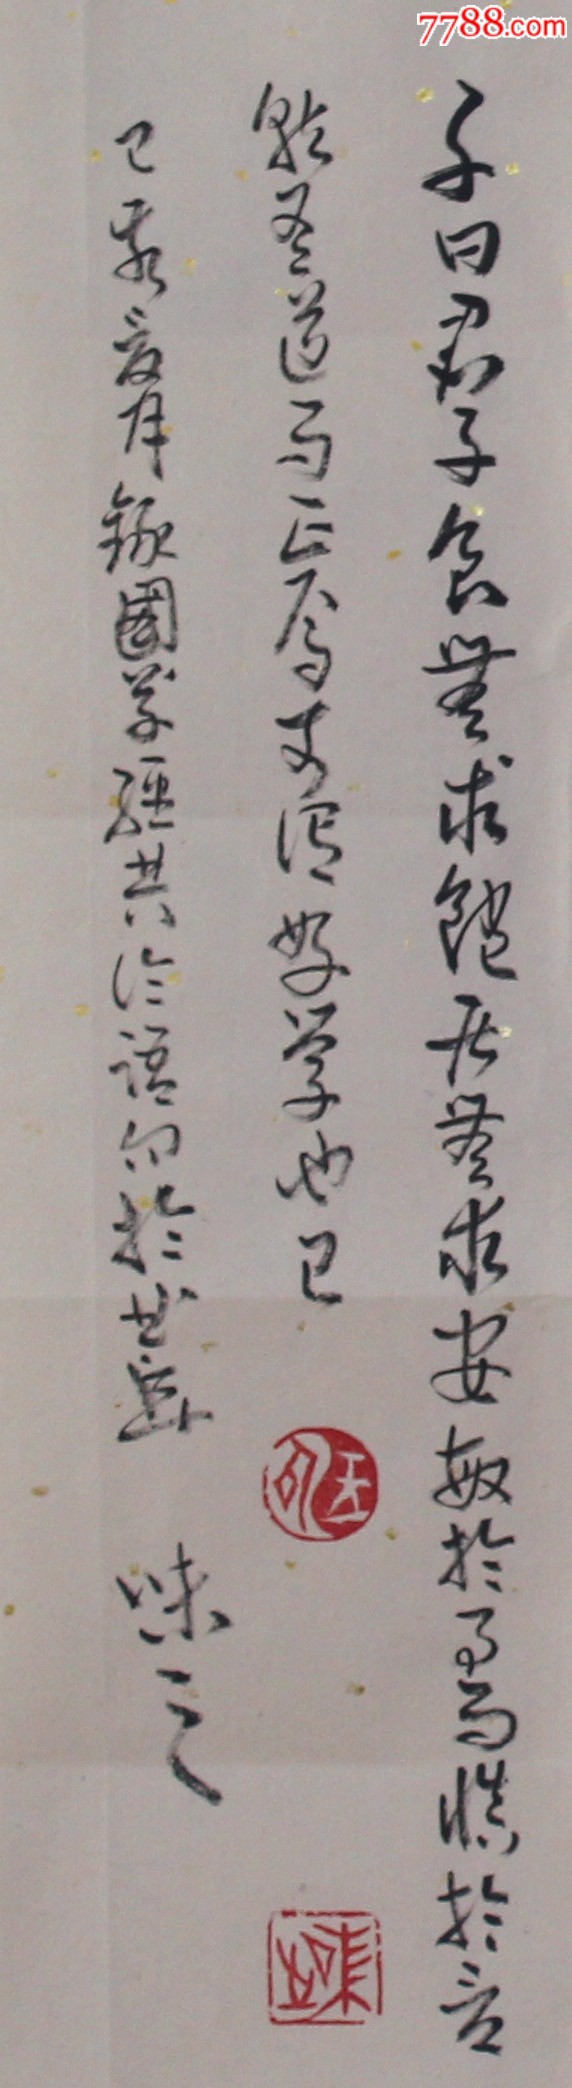 7788.com
子曰君子食無求飽居無求安敏於事而慎於言
就有道而正焉可謂好學也已
己亥夏月錄國學經典論語句於
味之